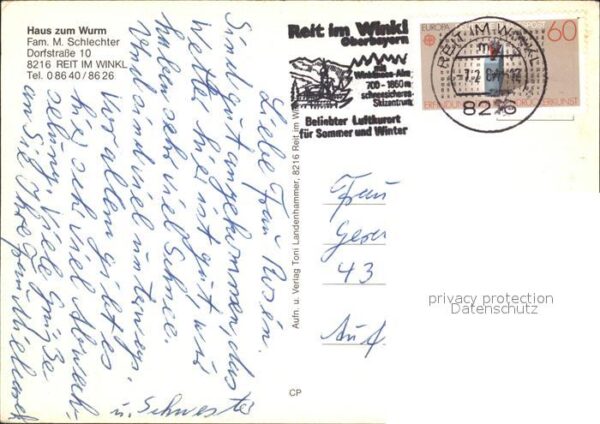 Haus zum Wurm
Fam. M. Schlechter
Dorfstraße 10
8216 REIT IM WINKL
Tel. 0 86 40 / 86 26
Reit im Winkl
Oberbayern
Winklmoos-Alm
700 - 1860 m
schneesicheres
Skizentrum
Beliebter Luftkurort
für Sommer und Winter
EUROPA
60
REIT IM WINKL
8216
Liebe Frau Rosen.
Sind gut angekommen, das
Wetter hier ist gut, wir
haben sehr viel Schnee.
Und sind viel unterwegs,
vor allem gibt es
hier sehr viel Abwech-
selung. Viele Grüße
an Sie Ihre Frau
u. Schwester
Aufn. u. Verlag Toni Landenhammer, 8216 Reit im
CP
Frau
43
privacy protection
Datenschutz